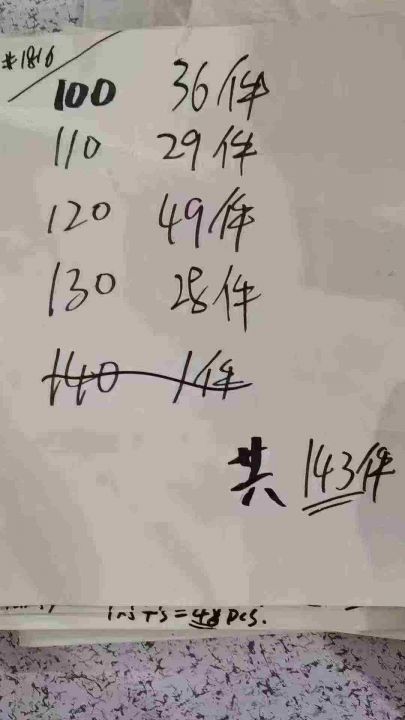 #1816
100 36件
110 29件
120 49件
130 28件
140 1件
共 143件
= 48 pcs.